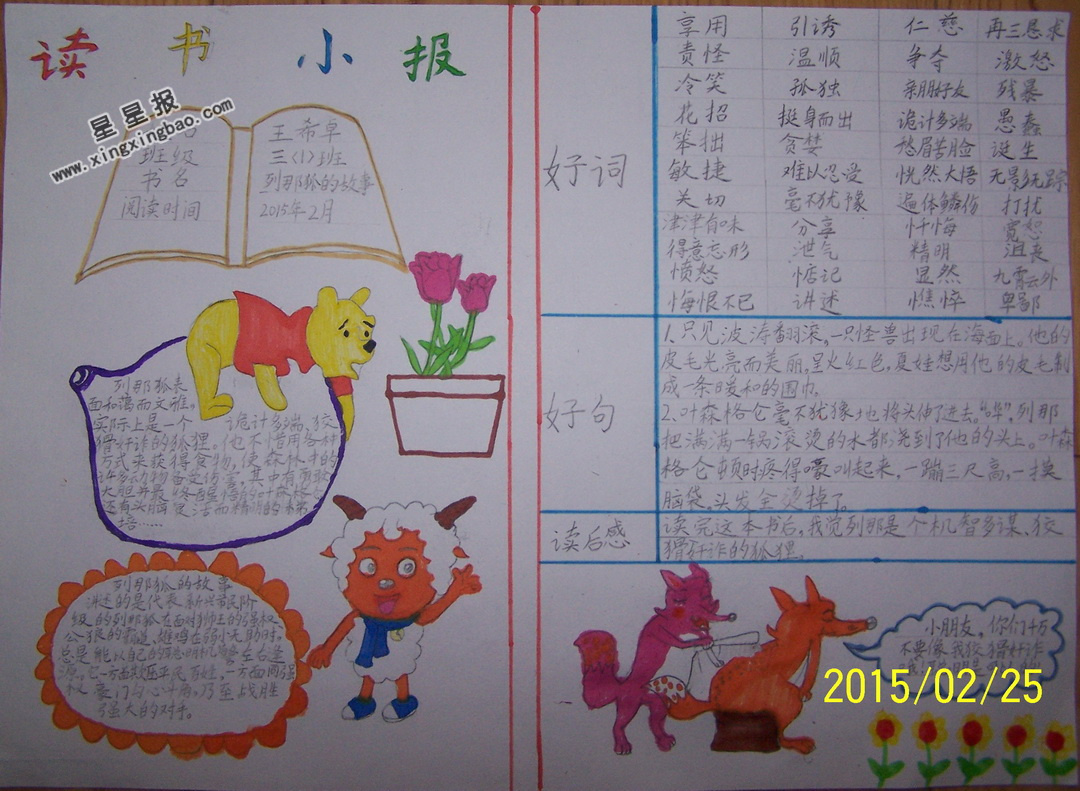 读书小报
星星报
www.xingxingbao.com
王希卓
班级 三(1)班
书名 列那狐的故事
阅读时间 2015年2月
列那狐表
面和蔼而文雅。
实际上是一个 诡计多端、狡
猾奸诈的狐狸。他也不惜用各种
方式来获得食物，使森林中的
许多动物备受伤害，其中有
列那狐的故事
讲述的是代表新兴市民阶
级的列那狐在面对狮王的强权
公狼的霸道,雄鸡
总是能以自己的聪明机
强大的对手。
好词
享用 引诱 仁慈 再三恳求
责怪 温顺 争夺 激怒
冷笑 孤独 亲朋好友 残暴
花招 挺身而出 诡计多端 愚蠢
笨拙 贪婪 愁眉苦脸 诞生
敏捷 难以忍受 恍然大悟 无影无踪
关切 毫不犹豫 遍体鳞伤 打扰
津津有味 分享 忏悔 宽恕
得意忘形 泄气 精明 沮丧
愤怒 惦记 显然 九霄云外
悔恨不已 讲述 憔悴 卑鄙
好句
1.只见波涛翻滚,一只怪兽出现在海面上。他的
皮毛光亮而美丽,呈火红色,夏娃想用他的皮毛制
成一条暖和的围巾。
2.叶森格仑毫不犹豫地将头伸了进去。“哗”,列那
把满满一锅滚烫的水都浇到了他的头上。叶森
格仑顿时疼得嚎叫起来,一蹦三尺高,一摸
脑袋,头发全烫掉了。
读后感
读完这本书后,我觉列那是个机智多谋、狡
猾奸诈的狐狸。
小朋友,你们千万
不要像我狡猾奸诈
2015/02/25